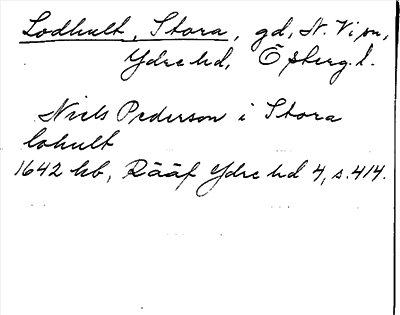 Lodhult, Stora, gd, N. Vi sn,
Ydre hd, Ö sberg. l.
Niels Pederson i Stora
lohult
1642 hb, Rääf Ydre hd 4, s. 414.